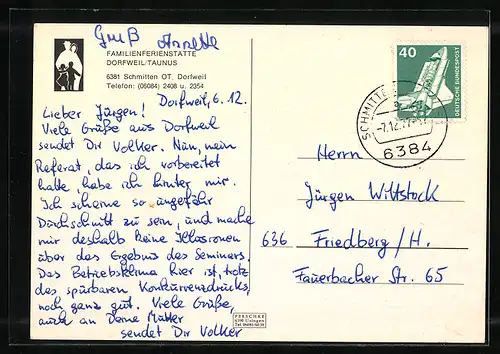 Gruß Annette
FAMILIENFERIENSTÄTTE
DORFWEIL/TAUNUS
6381 Schmitten OT. Dorfweil
Telefon: (06084) 2408 u. 2354
Dorfweil, 6.12.
Lieber Jürgen!
Viele Grüße aus Dorfweil
sendet Dir Volker. Nun, mein
Referat, das ich vorbereitet
hatte, habe ich hinter mir.
Ich scheine so ungefähr
Durchschnitt zu sein, und mache
mir deshalb keine Illusionen
über das Ergebnis des Seminars.
Das Betriebsklima hier ist, trotz
des spürbaren Konkurrenzdrucks,
noch ganz gut. Viele Grüße,
auch an Deine Mutter
sendet Dir Volker
PERSCHKE
6390 Usingen
40
DEUTSCHE BUNDESPOST
SCHMITTE
-7.12.77
6384
Herrn
Jürgen Wittstock
636 Friedberg/H.
Fauerbacher Str. 65